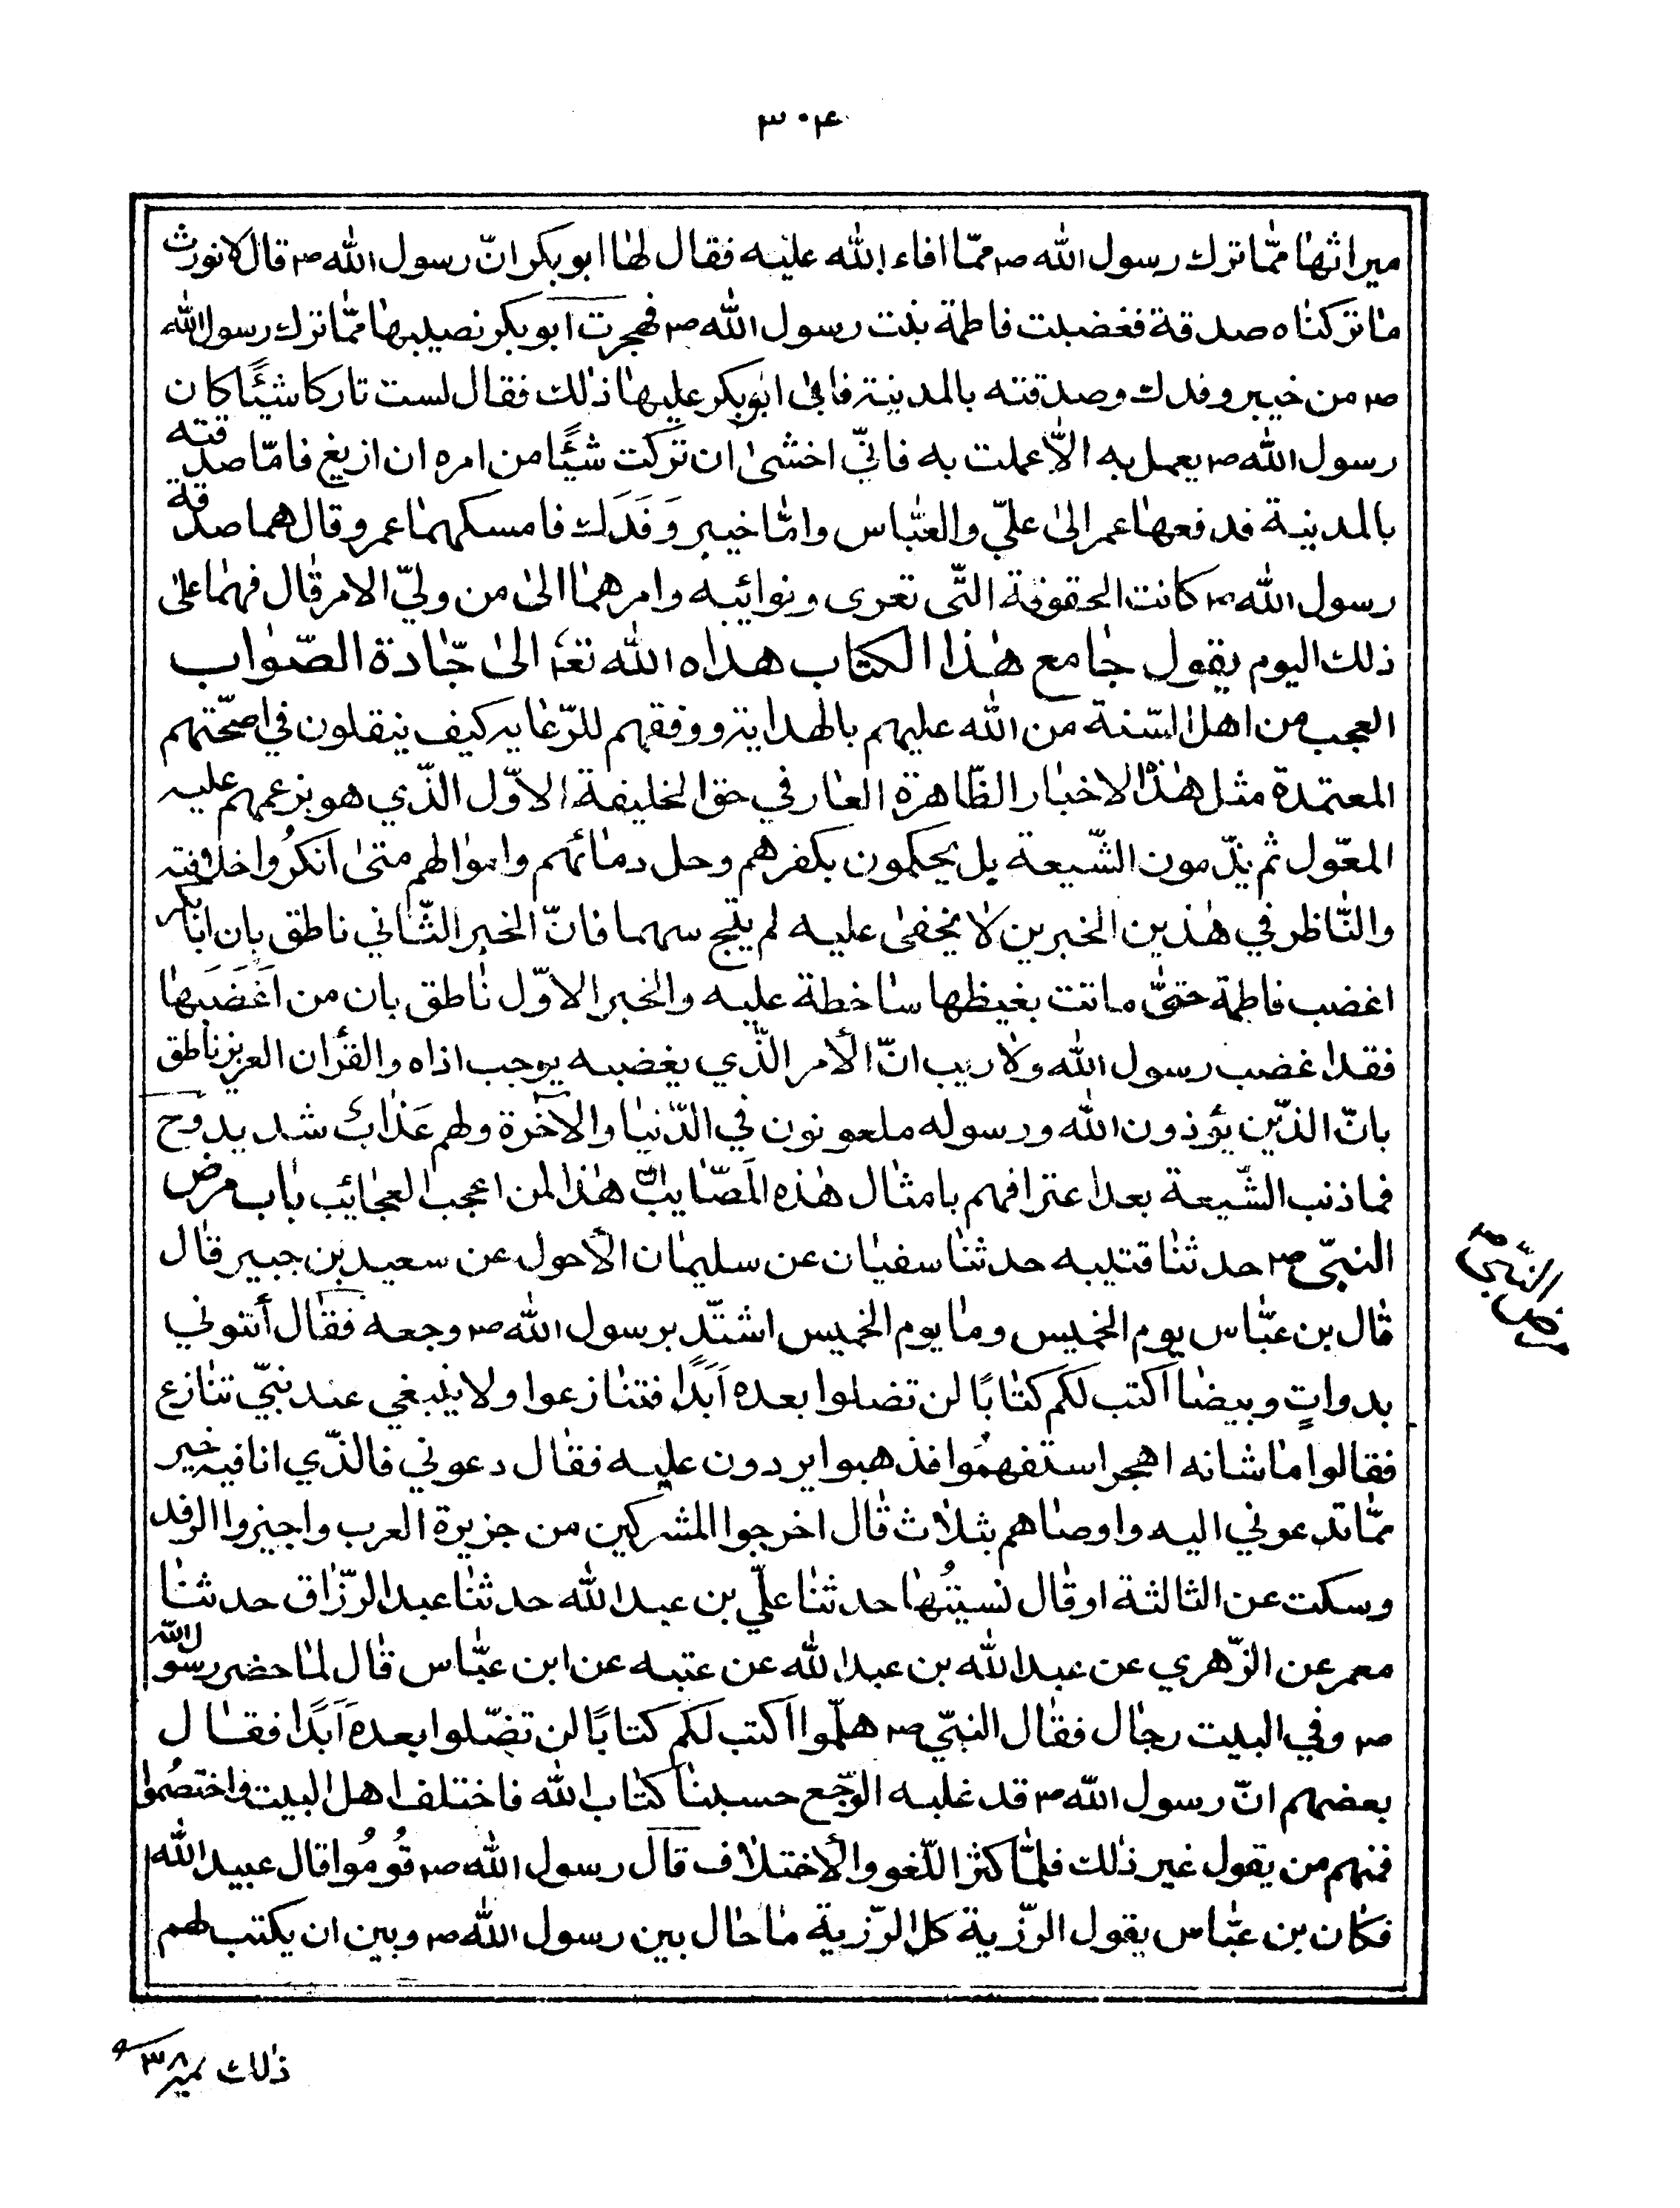 ٣٠٤
ميراثها ممّا ترك رسول الله ص ممّا افاء الله عليه فقال لها ابو بكر انّ رسول الله ص قال لا نورث
ما تركناه صدقة فغضبت فاطمة بنت رسول الله ص فهجرت ابو بكر نصيبها ممّا ترك رسول الله
ص من خيبر وفدك وصدقته بالمدينة فابى ابو بكر عليها ذلك فقال لست تاركا شيئًا كان
رسول الله ص يعمل به الّا عملت به فانّي اخشى ان تركت شيئًا من امره ان ازيغ فامّا صدقته
بالمدينة فدفعها عمر الى عليّ والعبّاس وامّا خيبر وَفَدَك فامسكهما عمر وقال هما صدقة
رسول الله ص كانت الحقوقة التّي تعرى ونوائبه وامرهما الى من وليّ الامر قال فهما على
ذلك اليوم يقول جامع هٰذا الكتاب هداه الله تعٰ الى جّادة الصّواب
العجب من اهل السّنة من الله عليهم بالهداية ووفقهم للرّعاية كيف ينقلون في اصحّتهم
المعتمدة مثل هٰذه الاخبار الظّاهرة العار في حق الخليفة الاوّل الذّي هو بزعمهم عليه
المعوّل ثم يذّمون الشّيعة بل يحكمون بكفرهم وحل دمائهم واموالهم متى انكرُوا خلافته
والنّاظر في هٰذين الخبرين لا يخفى عليه لم يتج سهما فانّ الخبر الثّاني ناطق بان ابا بكر
اغضب فاطمة حتىّ ماتت بغيظها ساخطة عليه والخبر الاوّل ناطق بان من اَغضَبَها
فقد اغضب رسول الله ولا ريب انّ الأمر الذّي يغضبه يوجب اذاه والقرأن العزيز ناطق
بانّ الذّين يؤذون الله ورسوله ملعونون في الدّنيا والآخرة ولهم عَذابٌ شديد وح
فما ذنب الشّيعة بعد اعترافهم بامثال هٰذه المَصّايب انّ هٰذا لمن اعجب العجائب باب مرض
النبّى ص حدثنا قتيبه حدثنا سفيان عن سليمان الأحول عن سعيد بن جبير قال
قال بن عبّاس يوم الخميس وما يوم الخميس اشتّد برسول الله ص وجعه فقال أتتوني
بدواتٍ وبيضا اكتب لكم كتابًا لن تضلوا بعده اَبَدًا فتنازعوا ولا ينبغي عند نبيّ تنازع
فقالوا ما شانه اهجر استفهمُوا فذهبوا يردون عليه فقال دعوني فالذّي انا فيه خير
ممّا تدعوني اليه واوصاهم بثلاث قال اخرجوا المشركين من جزيرة العرب واجيزوا الرفد
وسكت عن الثالثة او قال نسيتُها حدثنا عليّ بن عبد الله حدثنا عبد الرّزاق حدثنا
معمر عن الزّهري عن عبد الله بن عبد الله عن عتبه عن ابن عبّاس قال لما حضر رسول الله
ص وفي البيت رجال فقال النبيّ ص هلّموا اكتب لكم كتابًا لن تضّلوا بعده اَبَدًا فقال
بعضهم انّ رسول الله ص قد غلبه الوّجع حسبنا كتاب الله فاختلف اهل البيت واختصُموا
فمنهم من يقول غير ذلك فلمّا كثر اللّغو والأختلاف قال رسول الله ص قُومُوا قال عبيد الله
فكان بن عبّاس يقول الرّزية كل الرّزية ما حال بين رسول الله ص وبين ان يكتب لهم
مرض النبّي ص
ذلك نمبر ٣٨